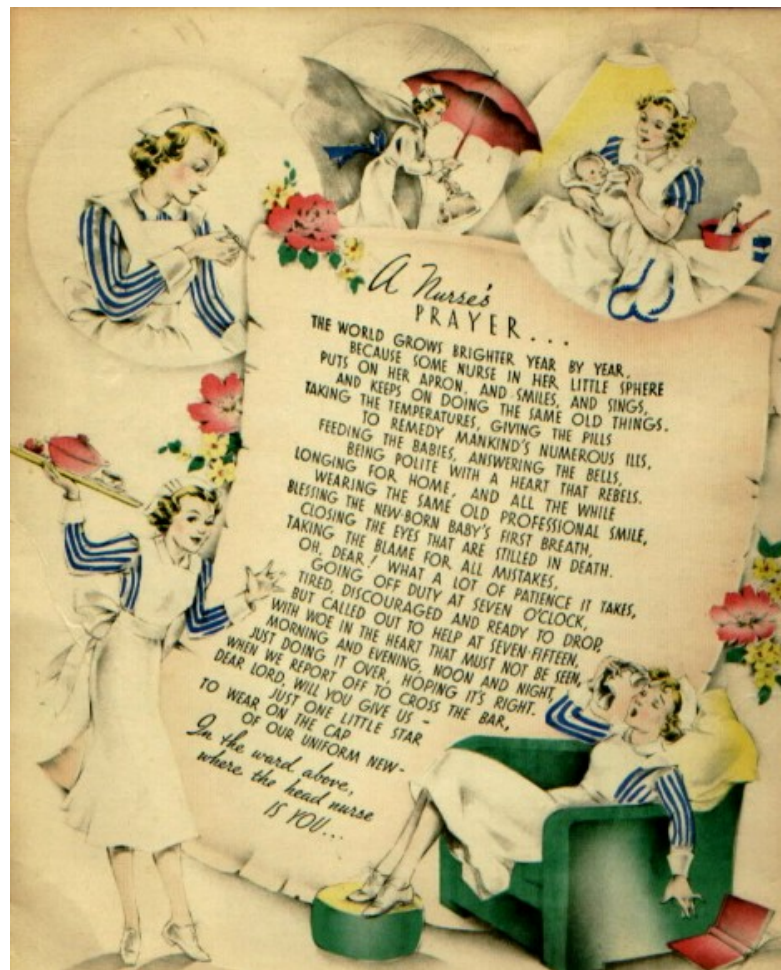 A Nurse's
PRAYER...
THE WORLD GROWS BRIGHTER YEAR BY YEAR,
BECAUSE SOME NURSE IN HER LITTLE SPHERE
PUTS ON HER APRON, AND SMILES, AND SINGS,
AND KEEPS ON DOING THE SAME OLD THINGS.
TAKING THE TEMPERATURES, GIVING THE PILLS
TO REMEDY MANKIND'S NUMEROUS ILLS,
FEEDING THE BABIES, ANSWERING THE BELLS,
BEING POLITE WITH A HEART THAT REBELS.
LONGING FOR HOME, AND ALL THE WHILE
WEARING THE SAME OLD PROFESSIONAL SMILE,
BLESSING THE NEW-BORN BABY'S FIRST BREATH,
CLOSING THE EYES THAT ARE STILLED IN DEATH.
TAKING THE BLAME FOR ALL MISTAKES,
OH, DEAR! WHAT A LOT OF PATIENCE IT TAKES,
GOING OFF DUTY AT SEVEN O'CLOCK,
TIRED, DISCOURAGED AND READY TO DROP,
BUT CALLED OUT TO HELP AT SEVEN-FIFTEEN,
WITH WOE IN THE HEART THAT MUST NOT BE SEEN,
MORNING AND EVENING, NOON AND NIGHT,
JUST DOING IT OVER, HOPING IT'S RIGHT.
WHEN WE REPORT OFF TO CROSS THE BAR,
DEAR LORD, WILL YOU GIVE US -
JUST ONE LITTLE STAR
TO WEAR ON THE CAP
OF OUR UNIFORM NEW-
In the ward above,
where the head nurse
IS YOU...